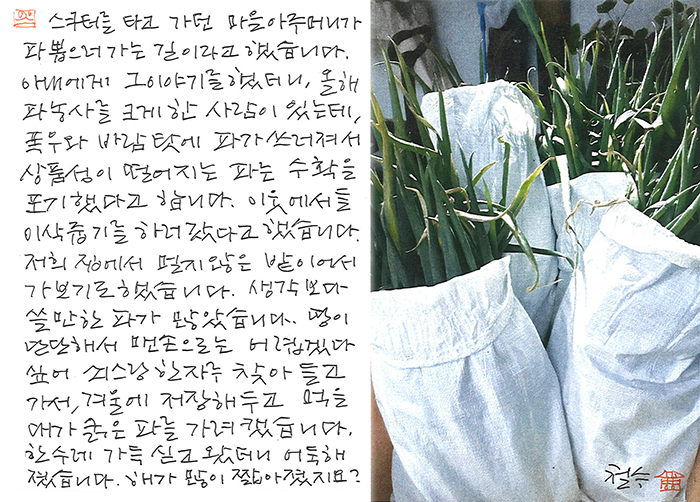 스쿠터를 타고 가던 마을아주머니가
파뽑으러 가는 길이라고 했습니다.
아내에게 그이야기를 했더니, 올해
파농사를 크게 한 사람이 있는데,
폭우와 바람 탓에 파가 쓰러져서
상품성이 떨어지는 파는 수확을
포기했다고 합니다. 이웃에서들
이삭줍기를 하러 갔다고 했습니다.
저희 집에서 멀지않은 밭이어서
가보기로했습니다. 생각보다
쓸만한 파가 많았습니다. 땅이
단단해서 맨손으로는 어렵겠다
싶어 쇠스랑 한자루 찾아 들고
가서, 겨울에 저장해두고 먹을
대가 굵은 파를 가려 캤습니다.
한수레 가득 싣고 왔더니 어둑해
졌습니다. 해가 많이 짧아졌지요?
철수